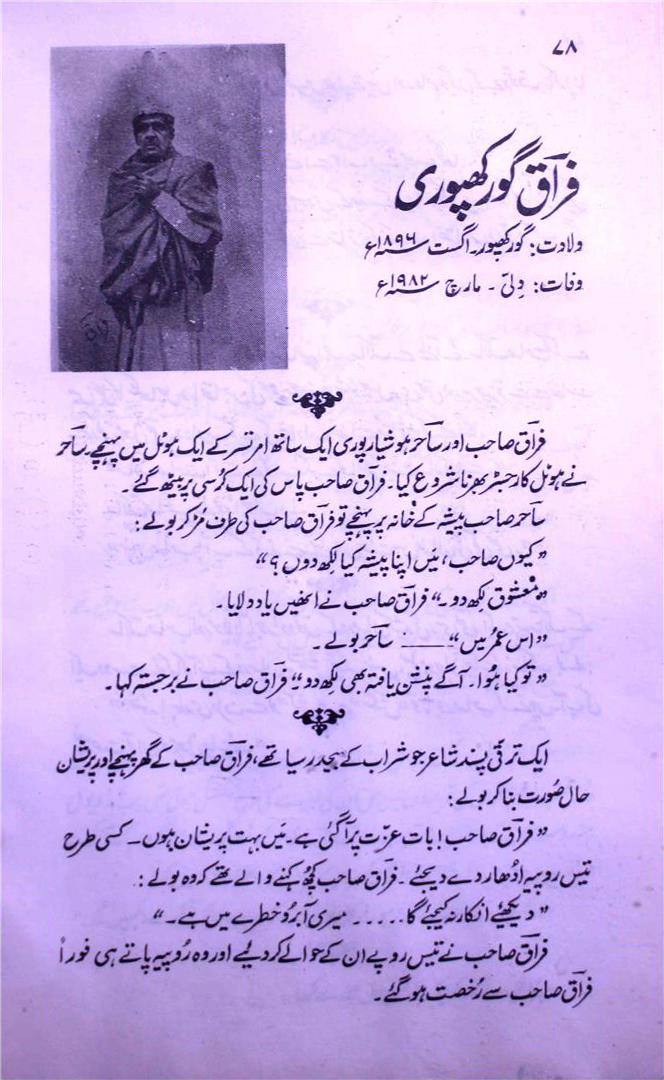 ۷۸
فراقؔ گورکھپوری
ولادت: گورکھپور۔ اگست ۱۸۹۶ء
وفات: دِلّی ۔ مارچ ۱۹۸۲ء
فراقؔ صاحب اور ساحرؔ ہوشیارپوری ایک ساتھ امرتسر کے ایک ہوٹل میں پہنچے۔ ساحرؔ
نے ہوٹل کا رجسٹر بھرنا شروع کیا۔ فراقؔ صاحب پاس کی ایک کُرسی پر بیٹھ گئے۔
ساحرؔ صاحب پیشہ کے خانہ پر پہنچے تو فراقؔ صاحب کی طرف مُڑ کر بولے:
”کیوں صاحب، مَیں اپنا پیشہ کیا لکھ دوں؟“
”معشوق لکھ دو۔“ فراقؔ صاحب نے انھیں یاد دلایا۔
”اس عمر میں“ ــــــ ساحرؔ بولے۔
”تو کیا ہُوا۔ آگے پنشن یافتہ بھی لکھ دو“ فراقؔ صاحب نے برجستہ کہا۔
ایک ترقی پسند شاعر جو شراب کے بیحد رسیا تھے، فراقؔ صاحب کے گھر پہنچے اور پریشان
حال صُورت بنا کر بولے:
”فراقؔ صاحب! بات عزّت پر آ گئی ہے۔ مَیں بہت پریشان ہوں۔ کسی طرح
تیس روپیہ اُدھار دے دیجئے۔ فراقؔ صاحب کچھ کہنے والے تھے کہ وہ بولے:
”دیکھئے انکار نہ کیجئے گا ..... میری آبرُو خطرے میں ہے۔“
فراقؔ صاحب نے تیس روپے ان کے حوالے کر دیئے اور وہ رُوپیہ پاتے ہی فوراً
فراقؔ صاحب سے رُخصت ہو گئے۔